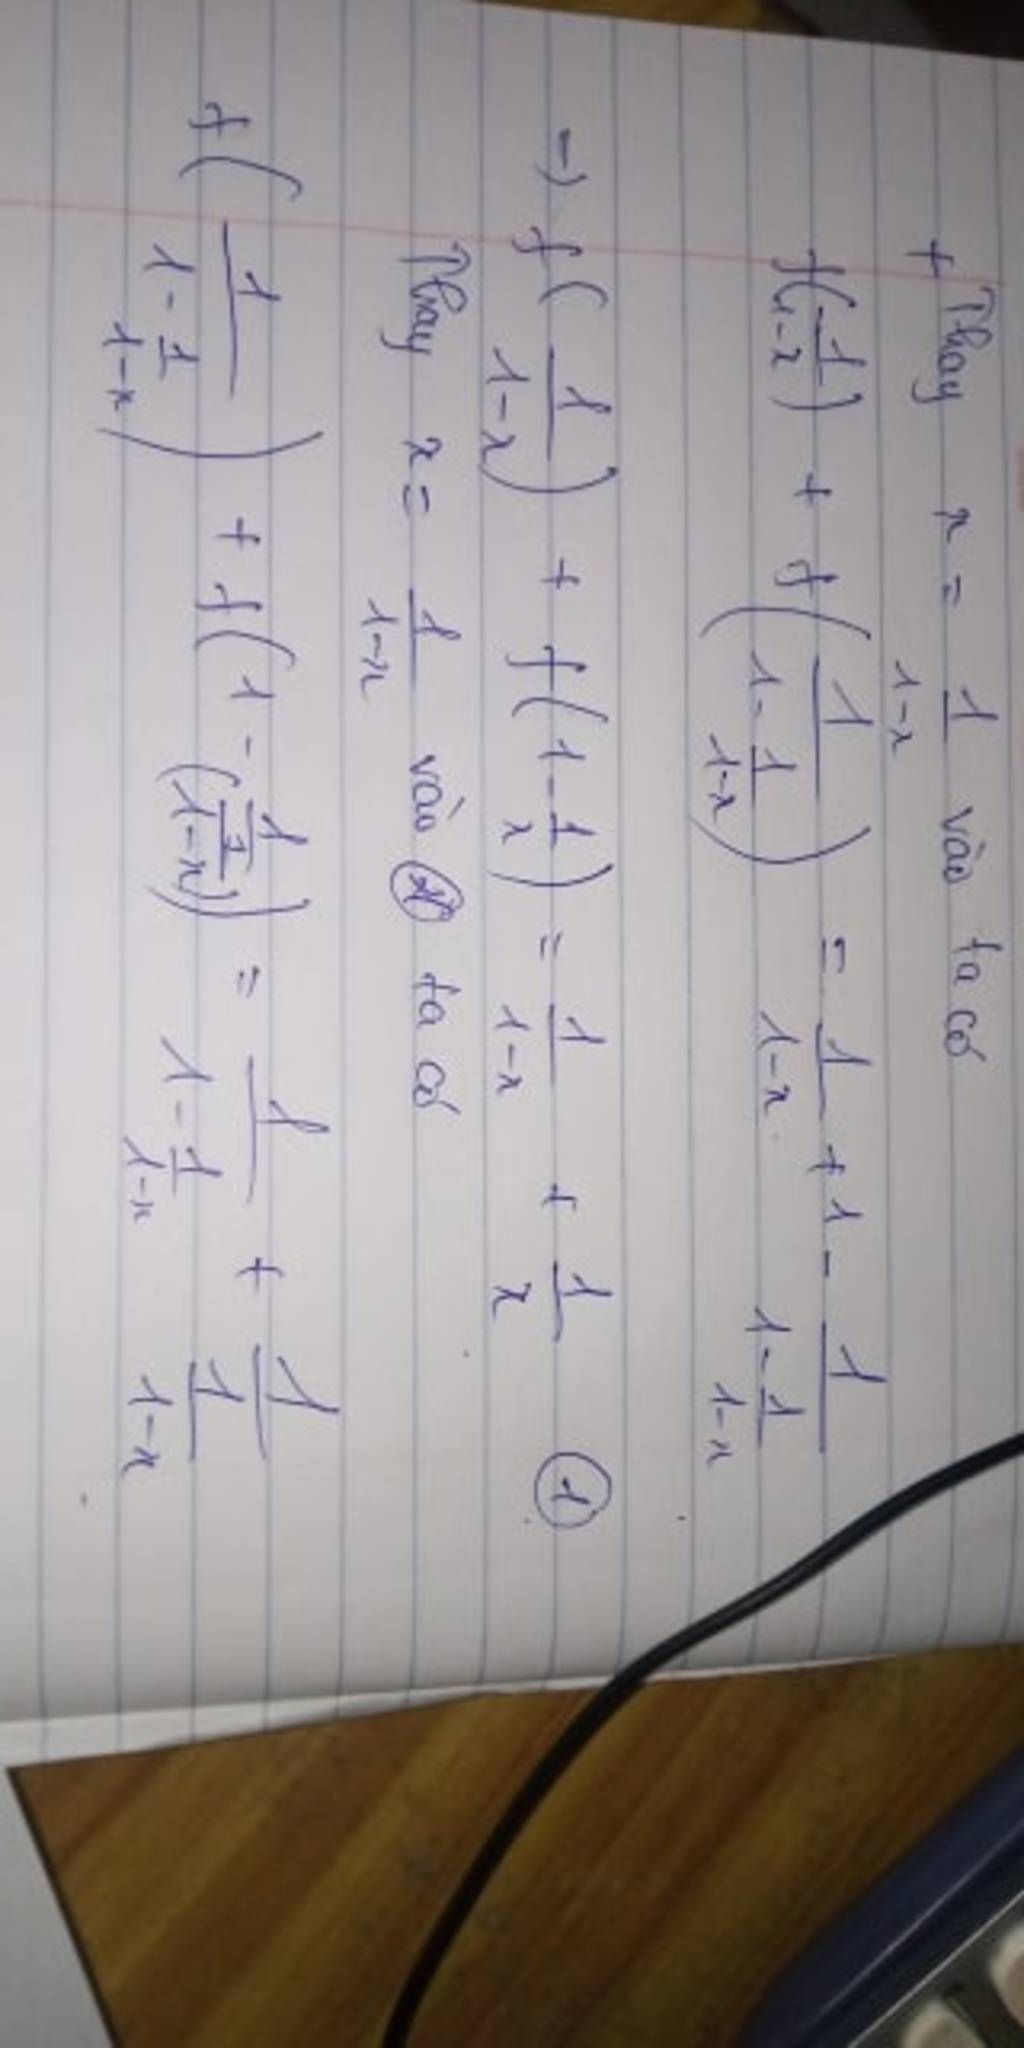 + Thay x = 1/(1-x) vào ta có
f(1/(1-x)) + f(1/(1 - 1/(1-x))) = 1/(1-x) + 1 - 1/(1 - 1/(1-x))
→ f(1/(1-x)) + f(1 - 1/x) = 1/(1-x) + 1/x ①
Thay x = 1/(1-x) vào ta có
f(1/(1 - 1/(1-x))) + f(1 - 1/(1/(1-x))) = 1/(1 - 1/(1-x)) + 1/(1/(1-x))